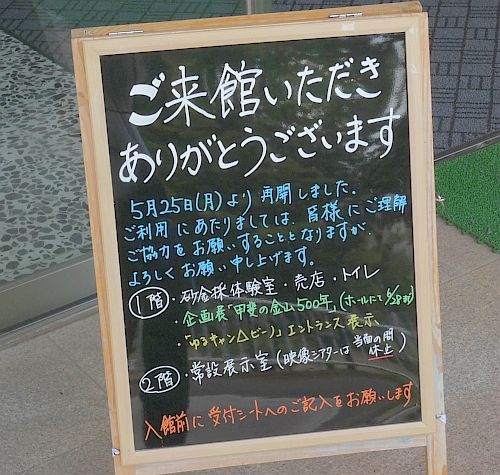 ご来館いただき
ありがとうございます
5月25日(月)より再開しました.
ご利用にあたりましては、皆様にご理解
ご協力をお願いすることとなりますが
よろしくお願い申し上げます。
1階・砂金採体験室・売店・トイレ
・企画展「甲斐の金山500年」(ホールにて6/28まで)
・「ゆるキャン△ビーノ」エントランス展示
2階・常設展示室(映像シアターは当面の間休止)
入館前に受付シートへのご記入をお願いします